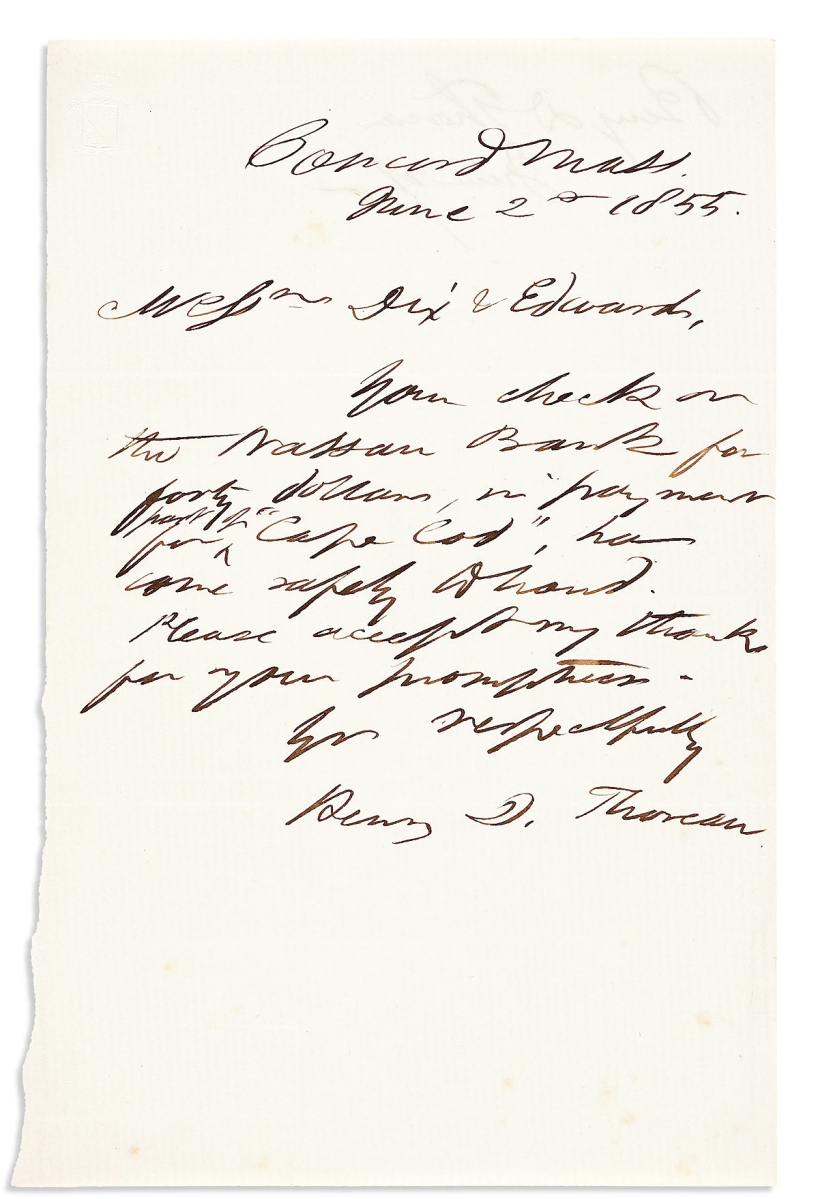 Concord Mass.
June 2d 1855.
Messrs Dix & Edwards,
Your check on
the Nassau Bank for
forty dollars, in payment
part of
for "Cape Cod", has
come safely to hand.
Please accept my thanks
for your promptness.
Yrs respectfully
Henry D. Thoreau